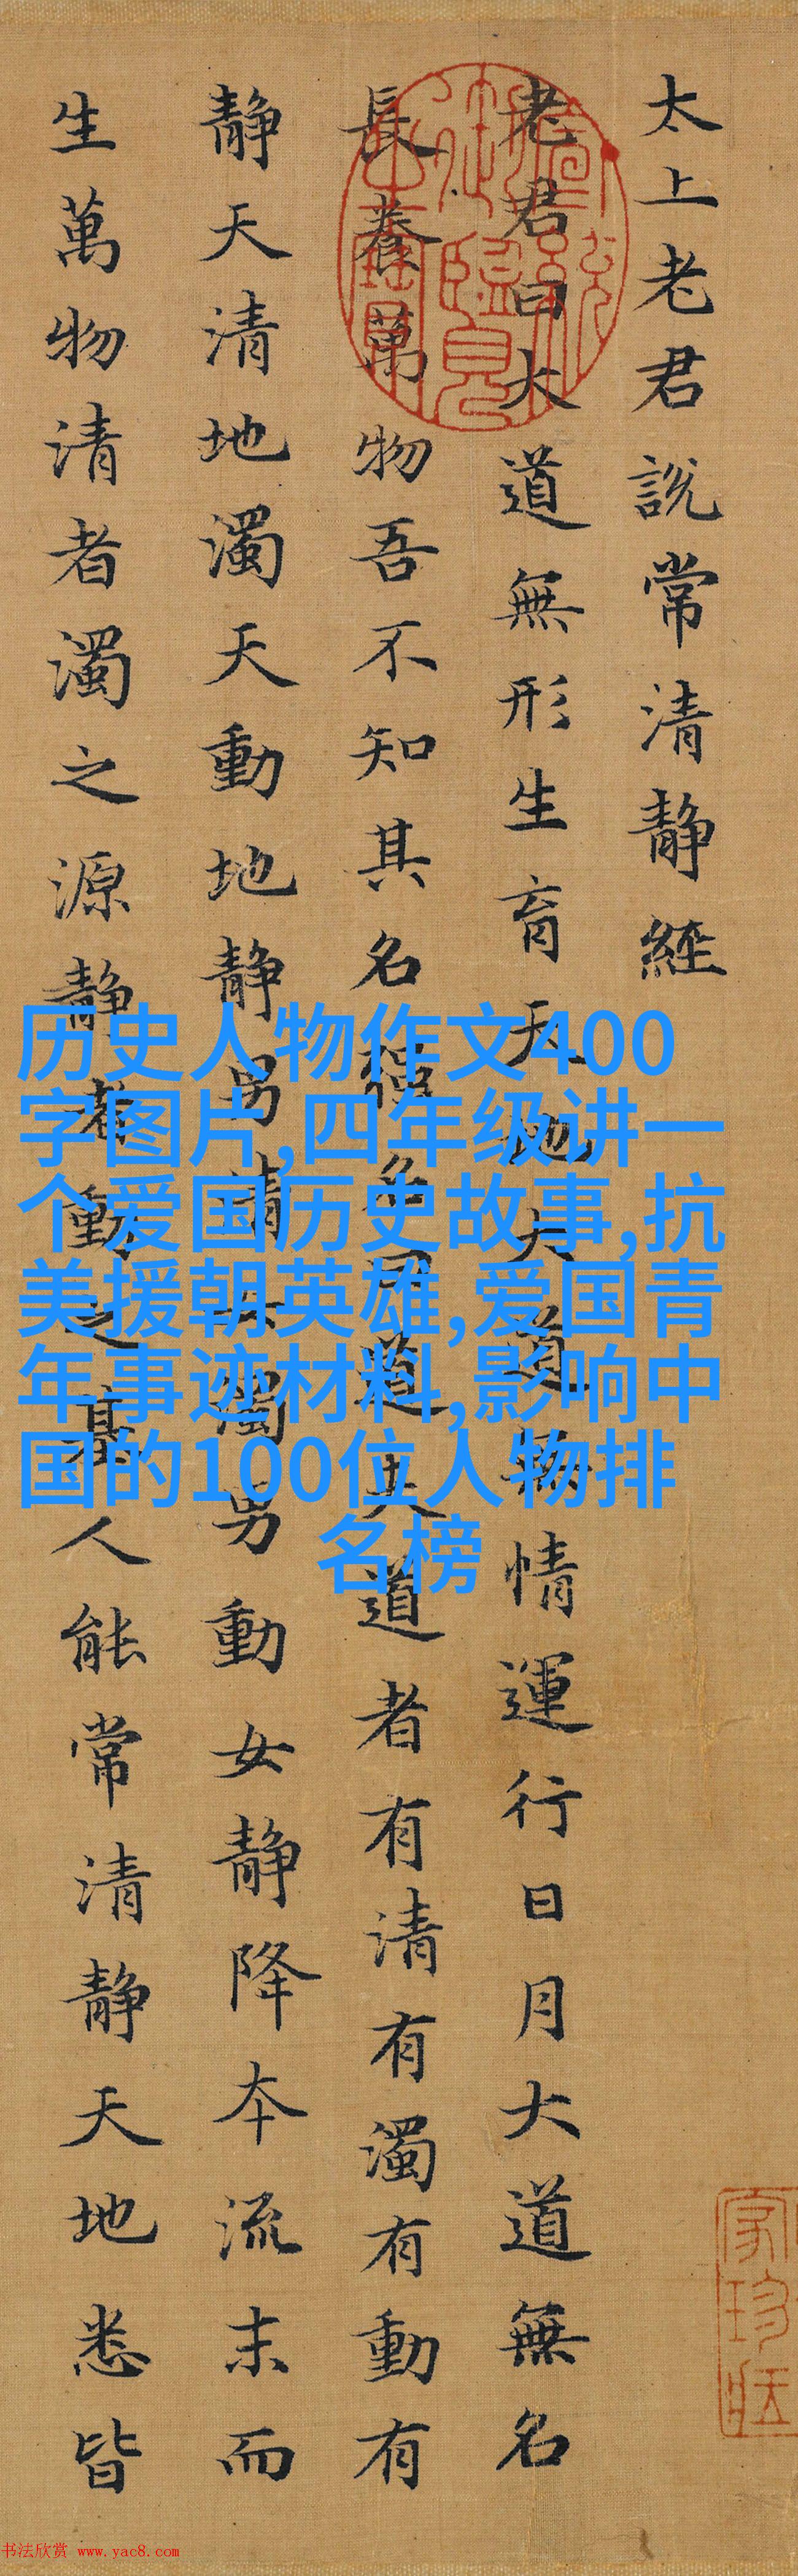 太上老君說常清静經
老君曰大道無形生育天地大道無情運行日月大道無名
長養萬物吾不知其名強名曰道夫道者有清有濁有動有
静天清地濁天動地静男清女濁男動女静降夲流末而
生萬物清者濁之源静者動之基人能常清静天地悉皆
宣統御覽之寶
历史人物作文400
字图片,四年级讲一
个爱国历史故事,抗
美援朝英雄,爱国青
年事迹材料,影响中
国的100位人物排
名榜
书法欣赏 www.yac8.com